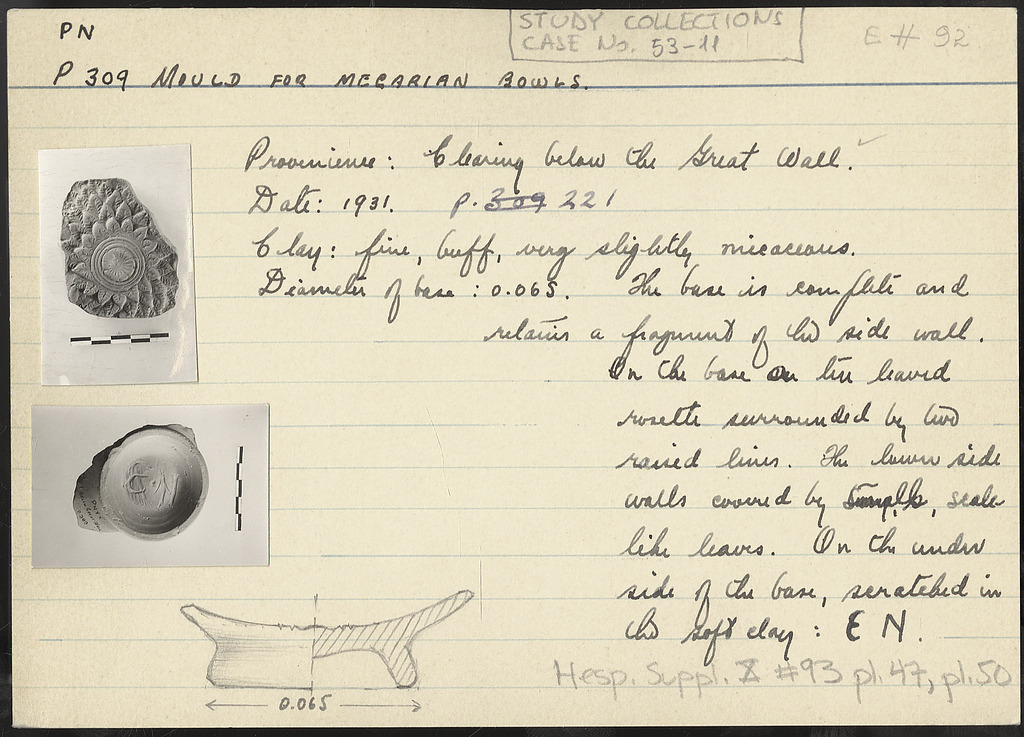 PN
STUDY COLLECTIONS
CASE No. 53-11
E # 92
P 309 MOULD FOR MEGARIAN BOWLS.
Provenience: Clearing below the Great Wall.
Date: 1931. P. 309 221
Clay: fine, buff, very slightly micaceous.
Diameter of base: 0.065. The base is complete and
retains a fragment of the side wall.
On the base a ten leaved
rosette surrounded by two
raised lines. The lower side
walls covered by simple, scale-
like leaves. On the under
side of the base, scratched in
the soft clay: E N.
Hesp. Suppl. X #93 pl. 47, pl. 50
0.065